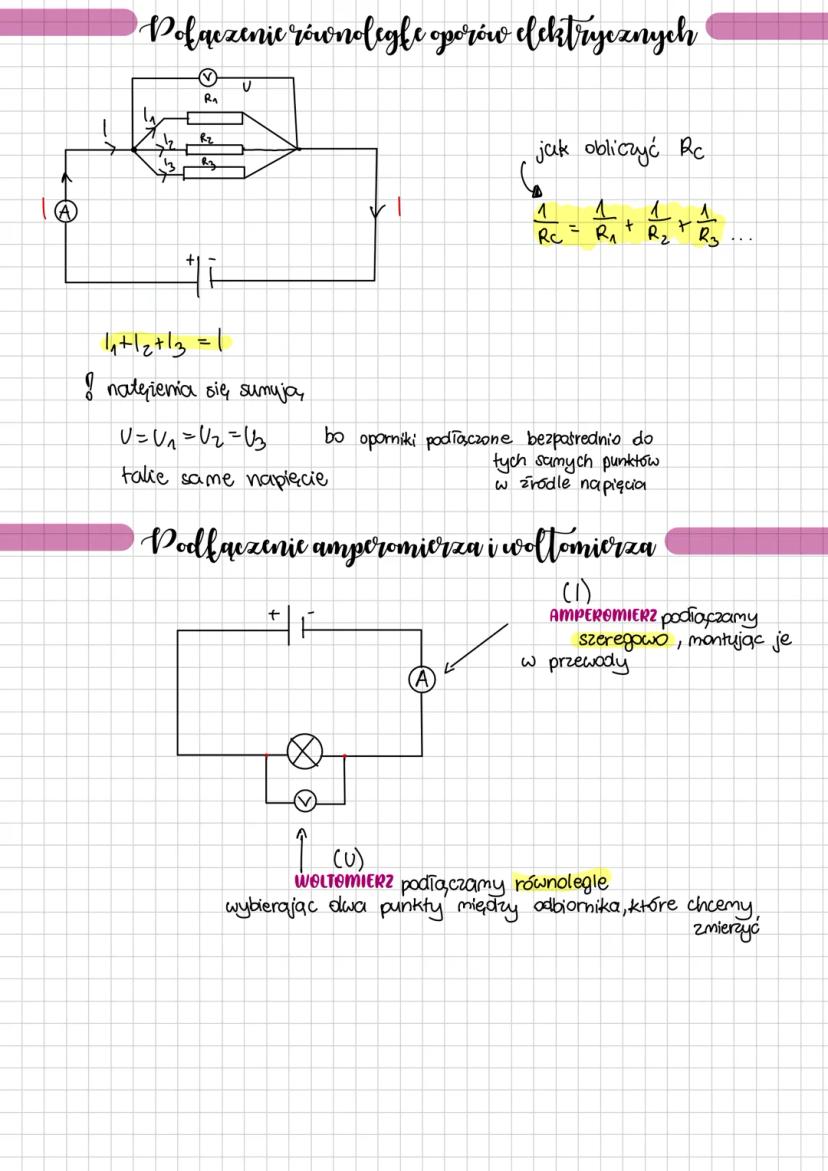 Połączenie równoległe oporów elektrycznych
V
U
R1
I1
I
I2
R2
I3
R3
I
A
I
+ -
jak obliczyć Rc
1/Rc = 1/R1 + 1/R2 + 1/R3 ...
I1+I2+I3 = I
! natężenia się sumują
U=U1=U2=U3
bo oporniki podłączone bezpośrednio do
tych samych punktów
takie same napięcie
w źródle napięcia
Podłączenie amperomierza i woltomierza
+ -
(I)
AMPEROMIERZ podłączamy
szeregowo, montując je
w przewody
A
V
(U)
WOLTOMIERZ podłączamy równolegle
wybierając dwa punkty między odbiornika, które chcemy
zmierzyć